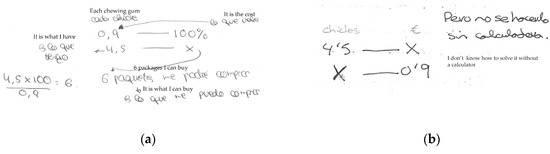 Each chewing gum
cada chicle
It is the cost
lo que vale
0,9 — 100%
It is what I have
es lo que
tengo
4,5 — x
6 packages I can buy
6 paquetes me podré comprar
It is what I can buy
lo que me puedo comprar
4,5 x 100
0,9
= 6.
(a)
chicles €
4'5 — X
X — 0'9
Pero no se hacerlo
sin calculadora.
I don't know how to solve it without
a calculator
(b)